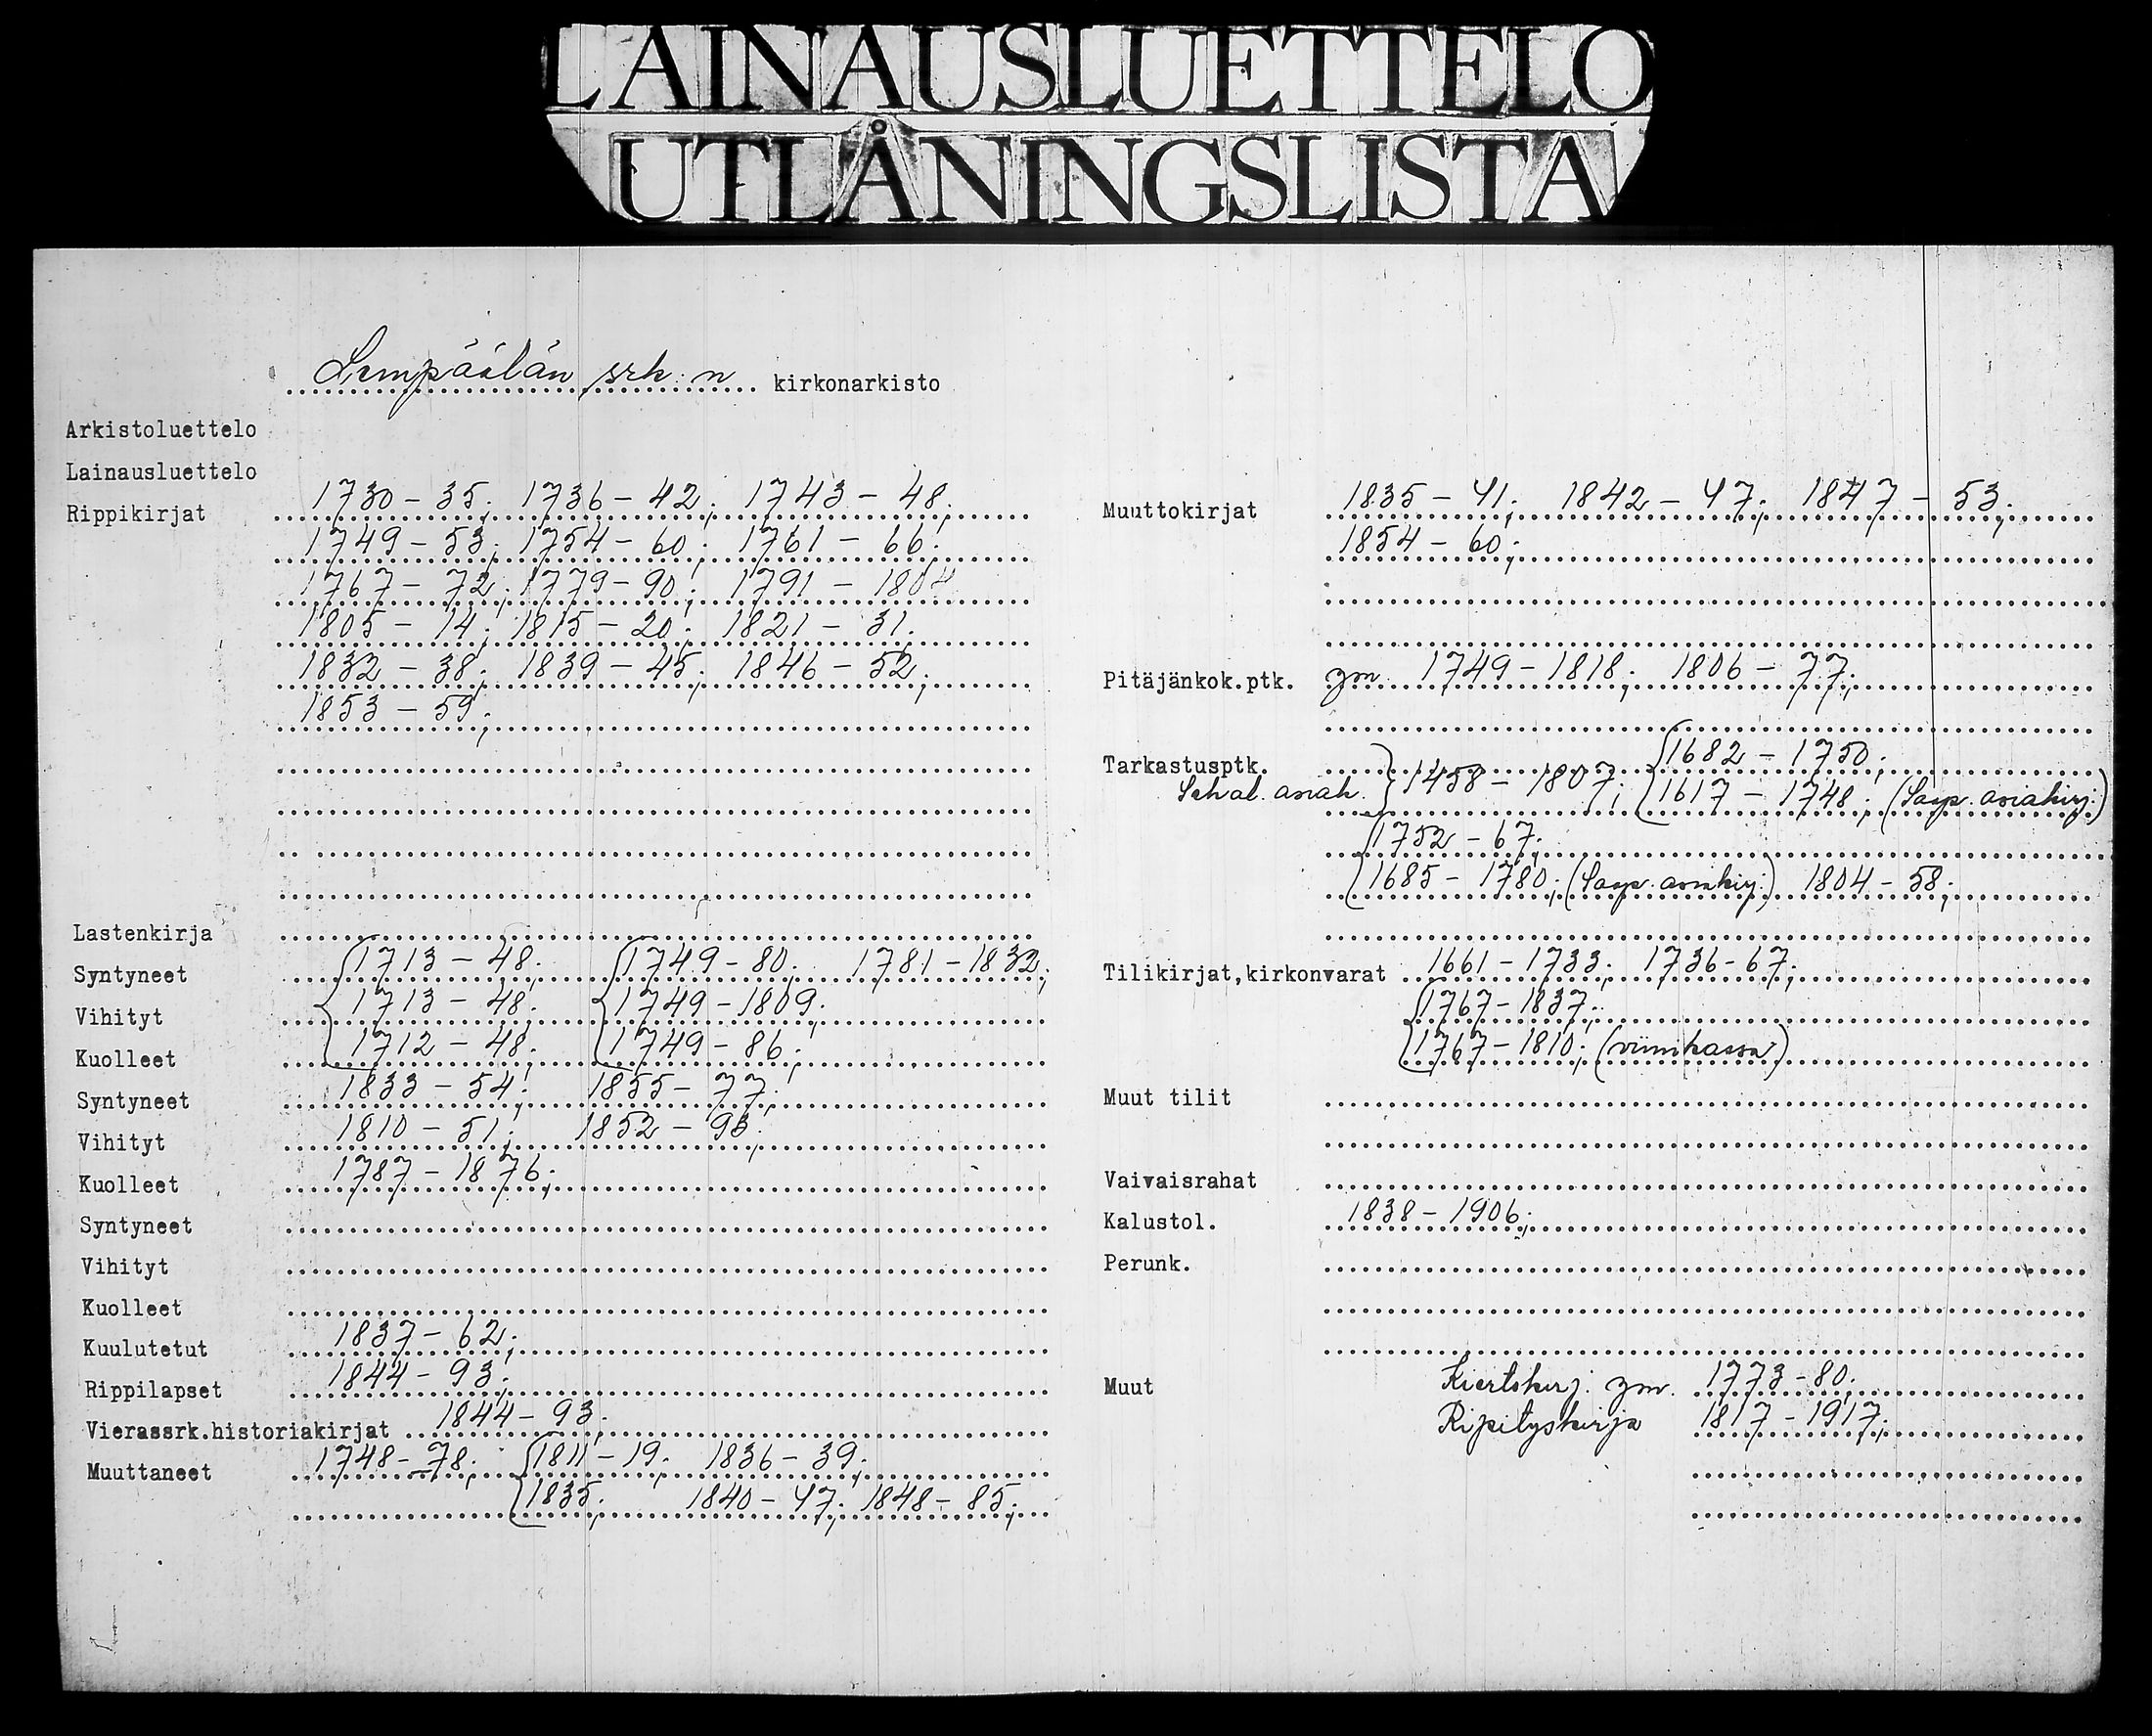 LAINAUSLUETTELO
UTLÅNINGSLISTA
Lempäälän srk:n kirkonarkisto
Arkistoluettelo
Lainausluettelo
Rippikirjat 1730-35; 1736-42; 1743-48;
1749-53; 1754-60; 1761-66;
1767-72; 1779-90; 1791-1804
1805-14; 1815-20; 1821-31;
1832-38; 1839-45; 1846-52;
1853-59;
Lastenkirja
Syntyneet 1713-48; 1749-80; 1781-1832;
Vihityt 1713-48; 1749-1809;
Kuolleet 1712-48; 1749-86;
Syntyneet 1833-54; 1855-77;
Vihityt 1810-51; 1852-93;
Kuolleet 1787-1876;
Syntyneet
Vihityt
Kuolleet
Kuulutetut 1837-62;
Rippilapset 1844-93;
Vierassrk.historiakirjat 1844-93;
Muuttaneet 1748-78; 1811-19; 1836-39;
1835; 1840-47; 1848-85;
Muuttokirjat 1835-41; 1842-47; 1847-53;
1854-60;
Pitäjänkok.ptk. ym 1749-1818; 1806-77;
Tarkastusptk. 1682-1750;
Sekal. asiak. 1458-1807; 1617-1748; (Saap. asiakirj.)
1752-67;
1685-1780; (Saap. asiakirj.) 1804-58;
Tilikirjat,kirkonvarat 1661-1733; 1736-67;
1767-1837;
1767-1810; (viinikassa)
Muut tilit
Vaivaisrahat
Kalustol. 1838-1906;
Perunk.
Muut Kiertokirj. ym. 1773-80;
Ripityskirja 1817-1917;